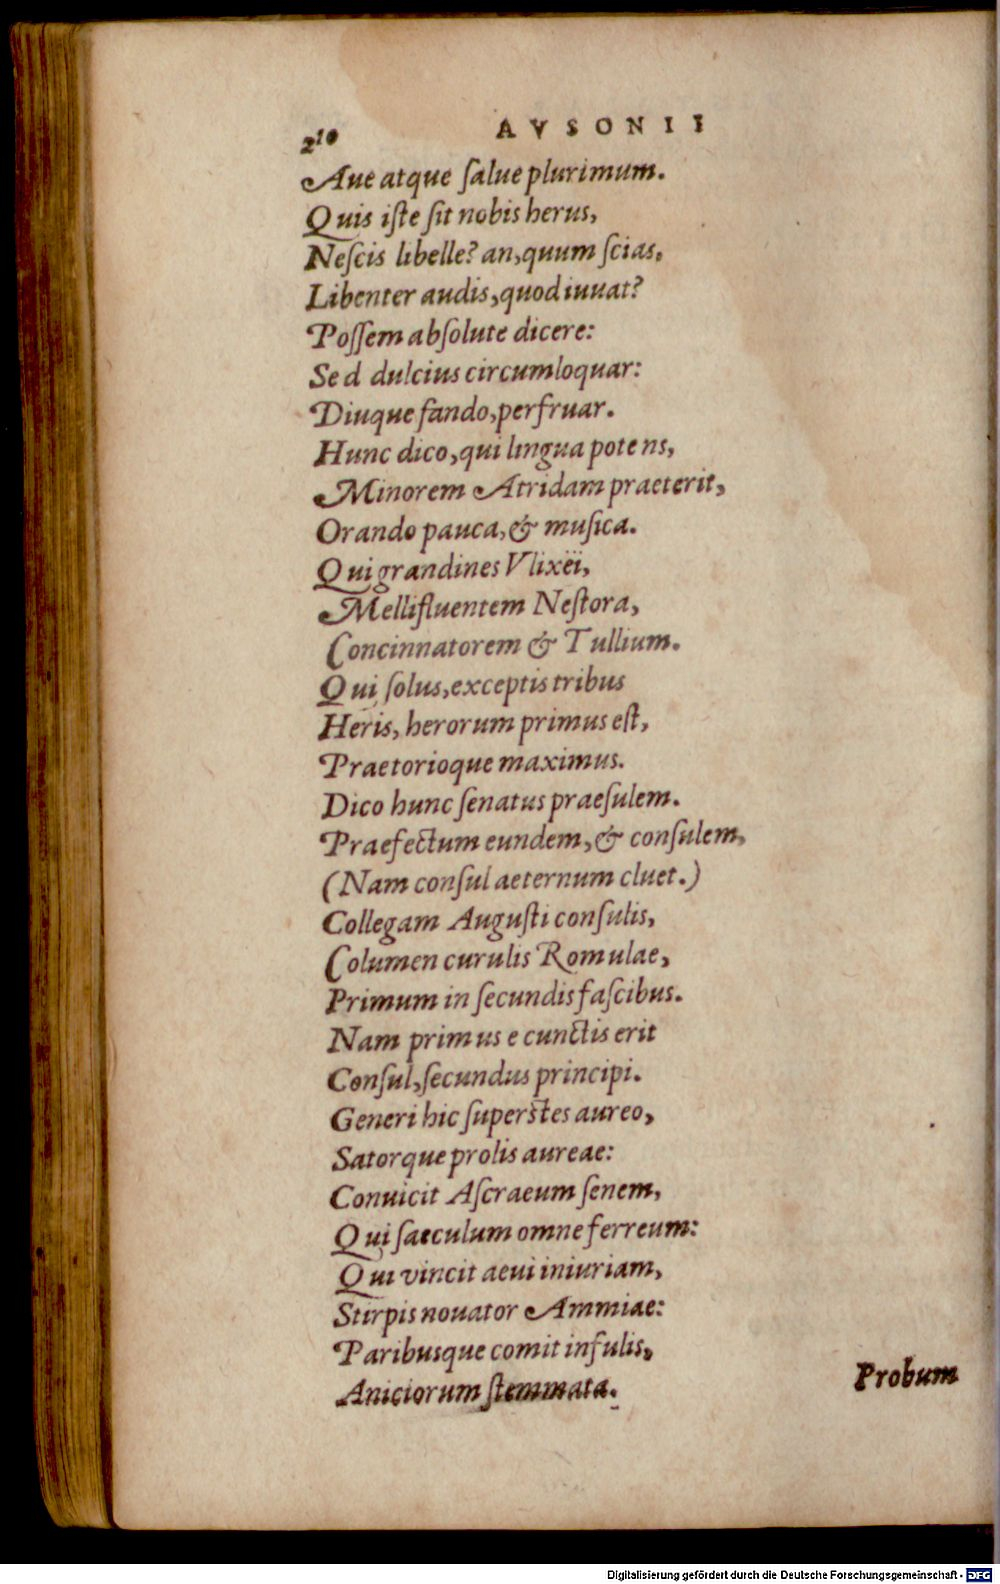 210 AVSONII
Aue atque ſalue plurimum.
Quis iſte ſit nobis herus,
Neſcis libelle? an, quum ſcias,
Libenter audis, quod iuuat?
Poſſem abſolute dicere:
Sed dulcius circumloquar:
Diuque fando, perfruar.
Hunc dico, qui lingua potens,
Minorem Atridam praeterit,
Orando pauca, & muſica.
Qui grandines Vlixëi,
Mellifluentem Neſtora,
Concinnatorem & Tullium.
Qui ſolus, exceptis tribus
Heris, herorum primus eſt,
Praetorioque maximus.
Dico hunc ſenatus praeſulem.
Praefectum eundem, & conſulem,
(Nam conſul aeternum cluet.)
Collegam Auguſti conſulis,
Columen curulis Romulae,
Primum in ſecundis faſcibus.
Nam primus e cunctis erit
Conſul, ſecundus principi.
Generi hic ſuperſtes aureo,
Satorque prolis aureae:
Conuicit Aſcraeum ſenem,
Qui ſaeculum omne ferreum:
Qui vincit aeui iniuriam,
Stirpis nouator Ammiae:
Paribusque comit infulis,
Aniciorum ſtemmata.
Probum
Digitalisierung gefördert durch die Deutsche Forschungsgemeinschaft - DFG